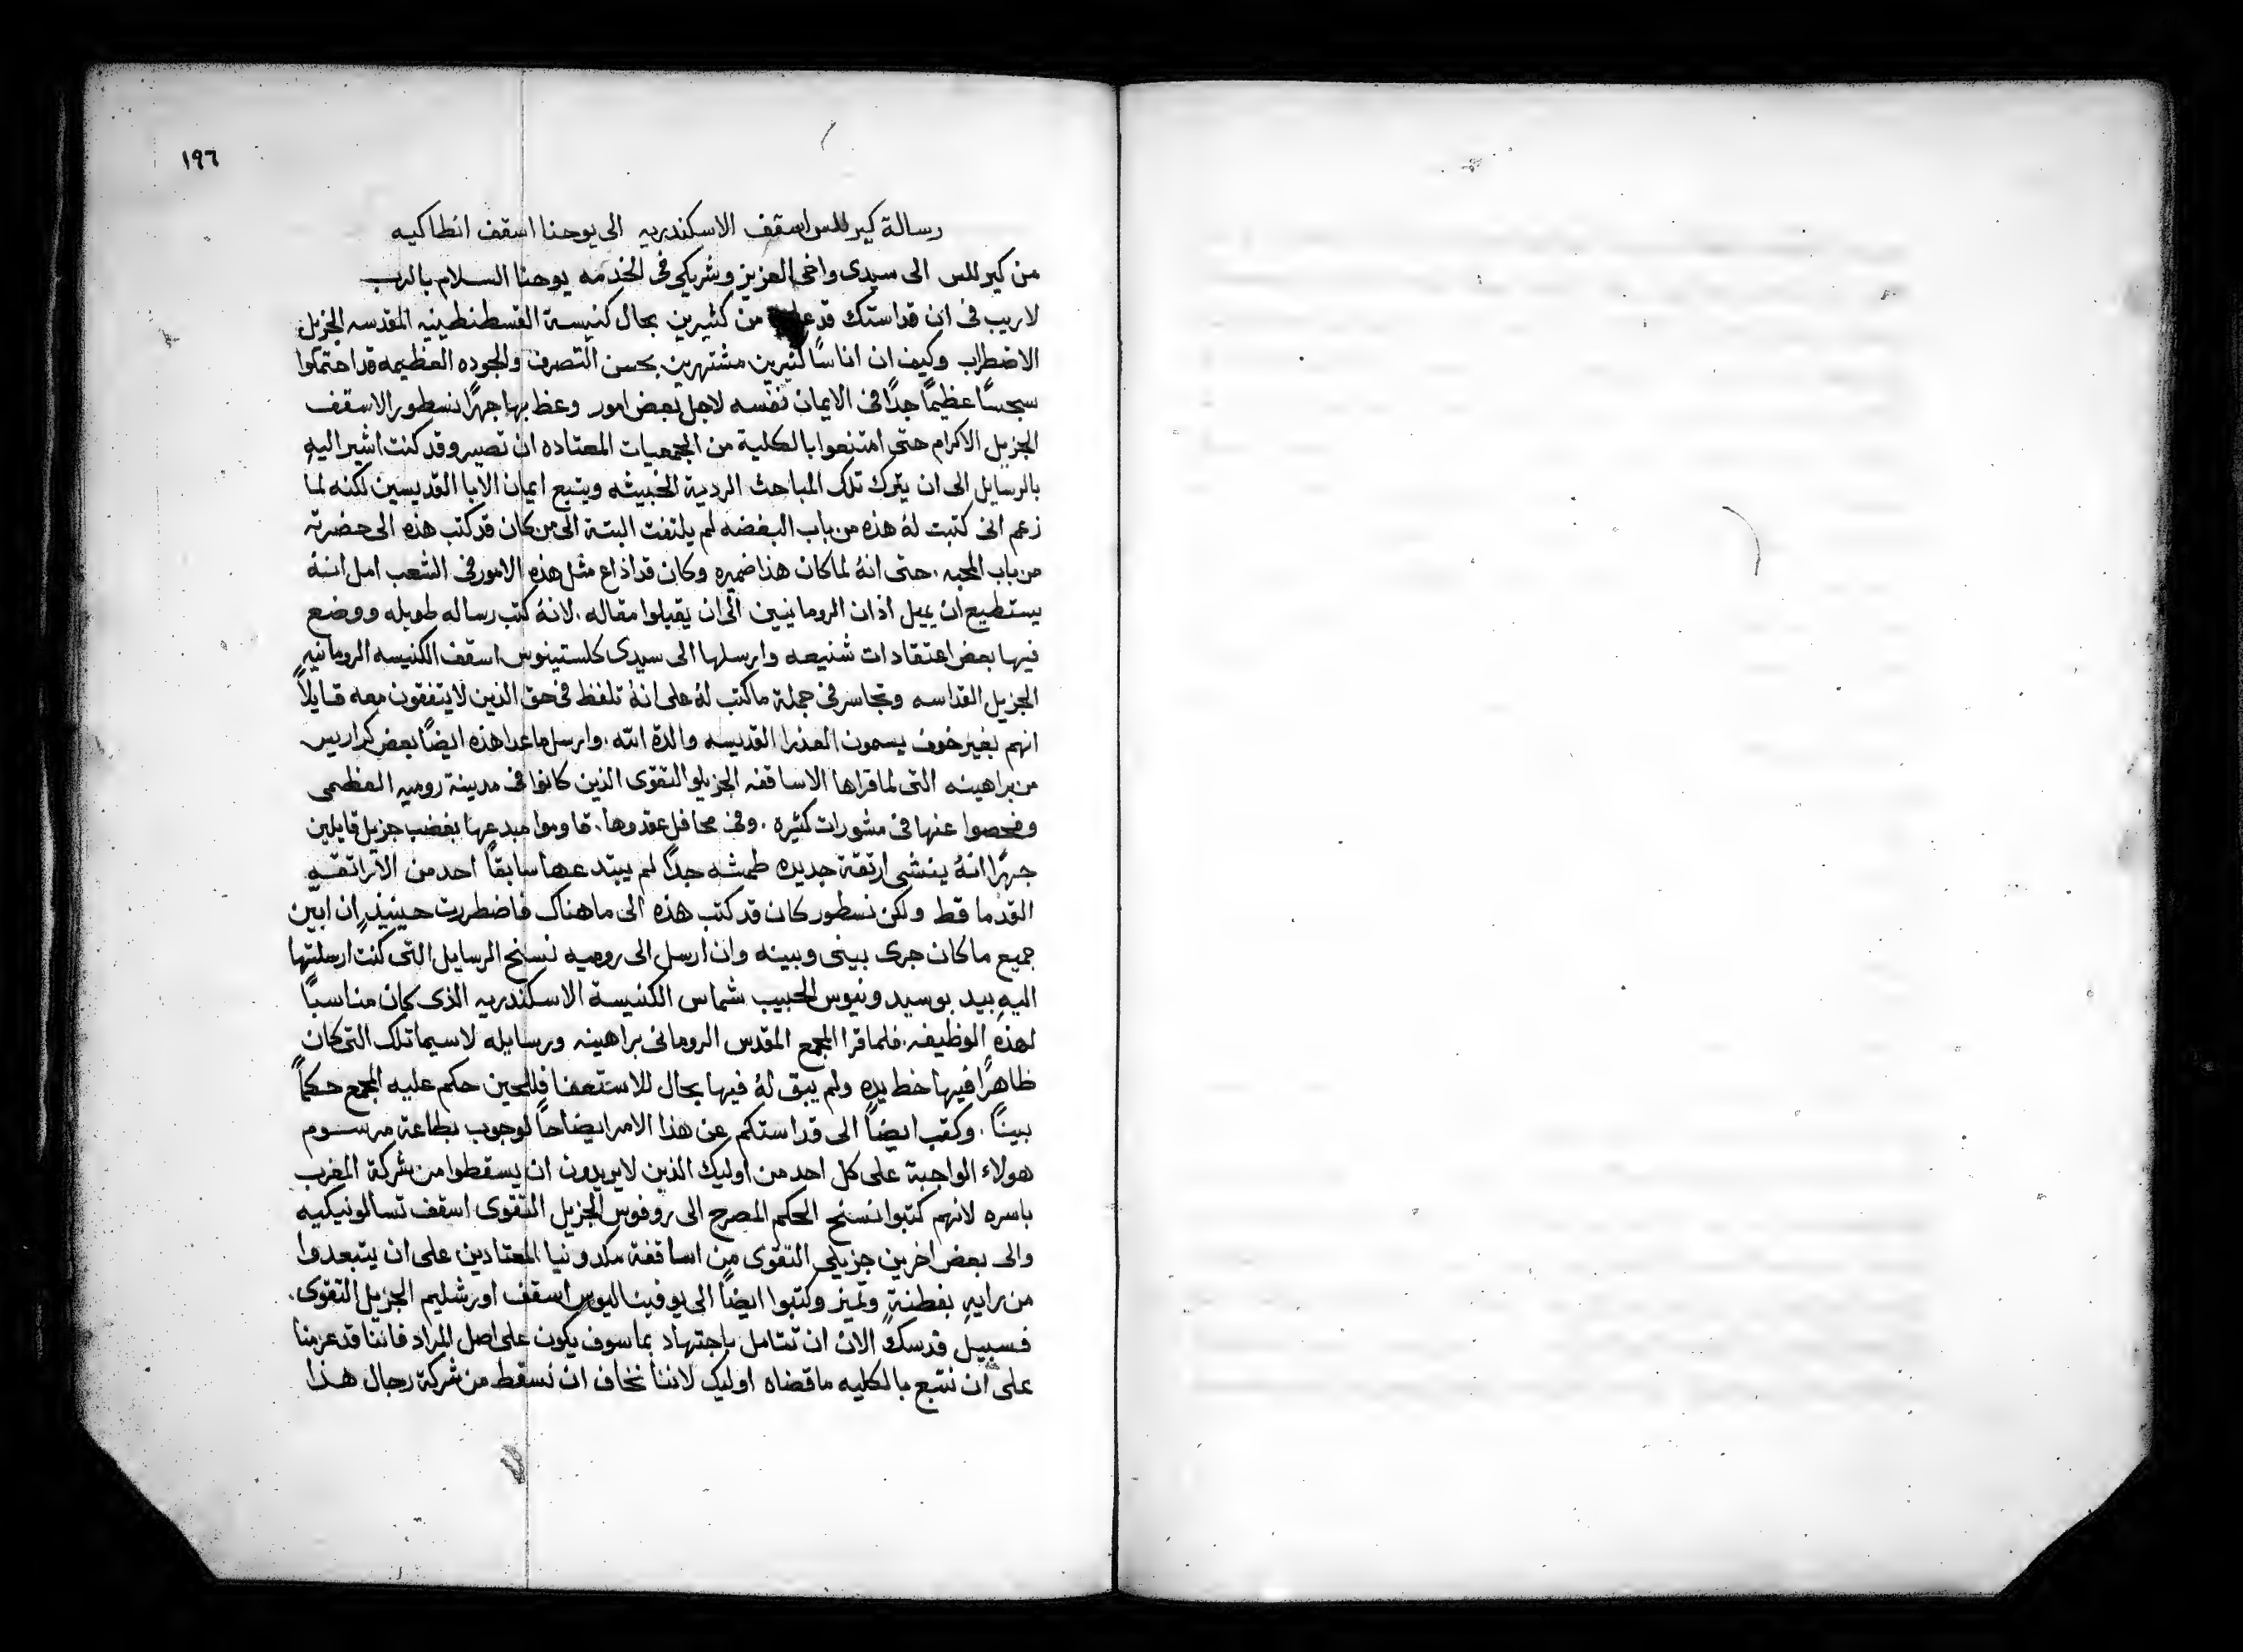 ١٩٦
رسالة كيرللس اسقف الاسكندريه الى يوحنا اسقف انطاكيه
من كيرللس الى سيدى واخى العزيز وشريكى فى الخدمه يوحنا السلام بالرب
لاريب فى ان قداستك قد من كثيرين بحال كنيسة القسطنطينيه المقدسه الجزيل
الاضطراب وكيف ان اناسًا كثيرين مشتهرين بحسن التصرف والجوده العظيمه قد احتملوا
سجسًا عظيمًا جدًا فى الايمان نفسه لاجل بعض امور وعظ بها جهرًا نسطور الاسقف
الجزيل الاكرام حتى امتنعوا بالكلية من الجمعيات المعتاده ان تصير وقد كنت اشير اليهِ
بالرسايل الى ان يترك تلك المباحث الردية الخبيثه ويتبع ايمان الابا القديسين لكنه لما
زعم انى كتبت لهُ هذه من باب البغضه لم يلتفت البتة الى من كان قد كتب هذه الى حضرته
من باب المحبه. حتى انهُ لما كان هذا ضميره وكان قد اذاع مثل هذه الامور فى الشعب امل انهُ
يستطيع ان يميل اذان الرومانيين الى ان يقبلوا مقاله. لانهُ كتب رساله طويله ووضع
فيها بعض اعتقادات شنيعه وارسلها الى سيدى كلستينوس اسقف الكنيسه الرومانيه
الجزيل القداسه وتجاسر فى جملة ما كتب لهُ على انهُ تلفظ فى حق الذين لا يتفقون معه قايلاً
انهم بغير خوف يسمون العذرا القديسه والدة الله. وارسل ما عدا هذه ايضًا بعض كراريس
من براهينه التى لما قراها الاساقفه الجزيلوا التقوى الذين كانوا فى مدينة روميه العظمى
وفحصوا عنها فى مشورات كثيرة. وفى محافل عقدوها. قاوموا مبدعها بغضب جزيل قايلين
جهرًا انهُ ينشى ارتقة جديده طمثه جدًا لم يبتدعها سابقًا احد من الاراتقه
القدما قط ولكن نسطور كان قد كتب هذه الى ما هناك فاضطررت حينيذٍ ان ابين
جميع ما كان جرى بينى وبينه وان ارسل الى روميه نسخ الرسايل التى كنت ارسلتها
اليهِ بيد بوسيدونيوس الحبيب شماس الكنيسة الاسكندريه الذى كان مناسبًا
لهذه الوظيفه. فلما قرا المجمع المقدس الرومانى براهينه ورسايله لاسيما تلك التى كان
ظاهرًا فيها خط يدهِ ولم يبق لهُ فيها بحال للاستعفا فللحين حكم عليه المجمع حكمًا
بينًا. وكتب ايضًا الى قداستكم عن هذا الامر ايضاحًا لوجوب بطاعة مرسوم
هولاء الواجبة على كل احد من اوليك الذين لا يريدون ان يسقطوا من شركة المغرب
باسره لانهم كتبوا نسخ الحكم المصرح الى روفوس الجزيل التقوى اسقف تسالونيكيه
والى بعض اخرين جزيلى التقوى من اساقفة مكدونيا المعتادين على ان يتبعدوا
من رايهِ بفطنةٍ وتميز وكتبوا ايضًا الى يوفيناليوس اسقف اورشليم الجزيل التقوى.
فسبيل قدسك الان ان تتامل باجتهاد بما سوف يكون على اصل المراد فاننا قد عزمنا
على ان نتبع بالكليه ما قضاه اوليك لاننا نخاف ان نسقط من شركة رجال هذا